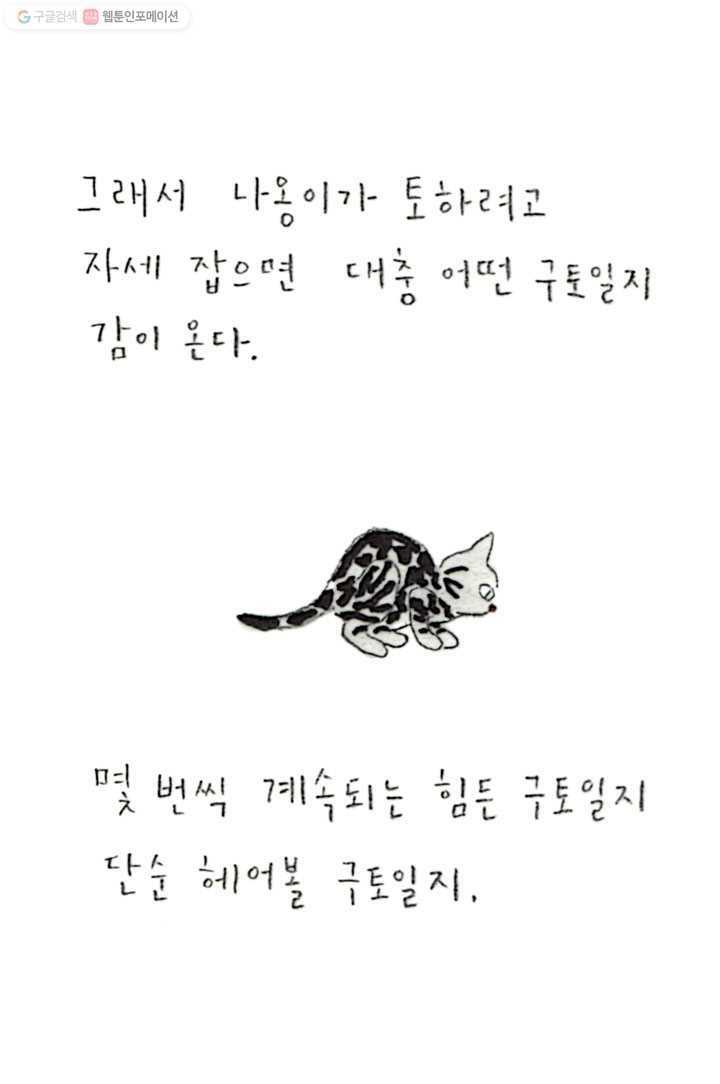 구글검색 웹툰인포메이션
그래서 나옹이가 토하려고
자세 잡으면 대충 어떤 구토일지
감이 온다.
몇 번씩 계속되는 힘든 구토일지
단순 헤어볼 구토일지.